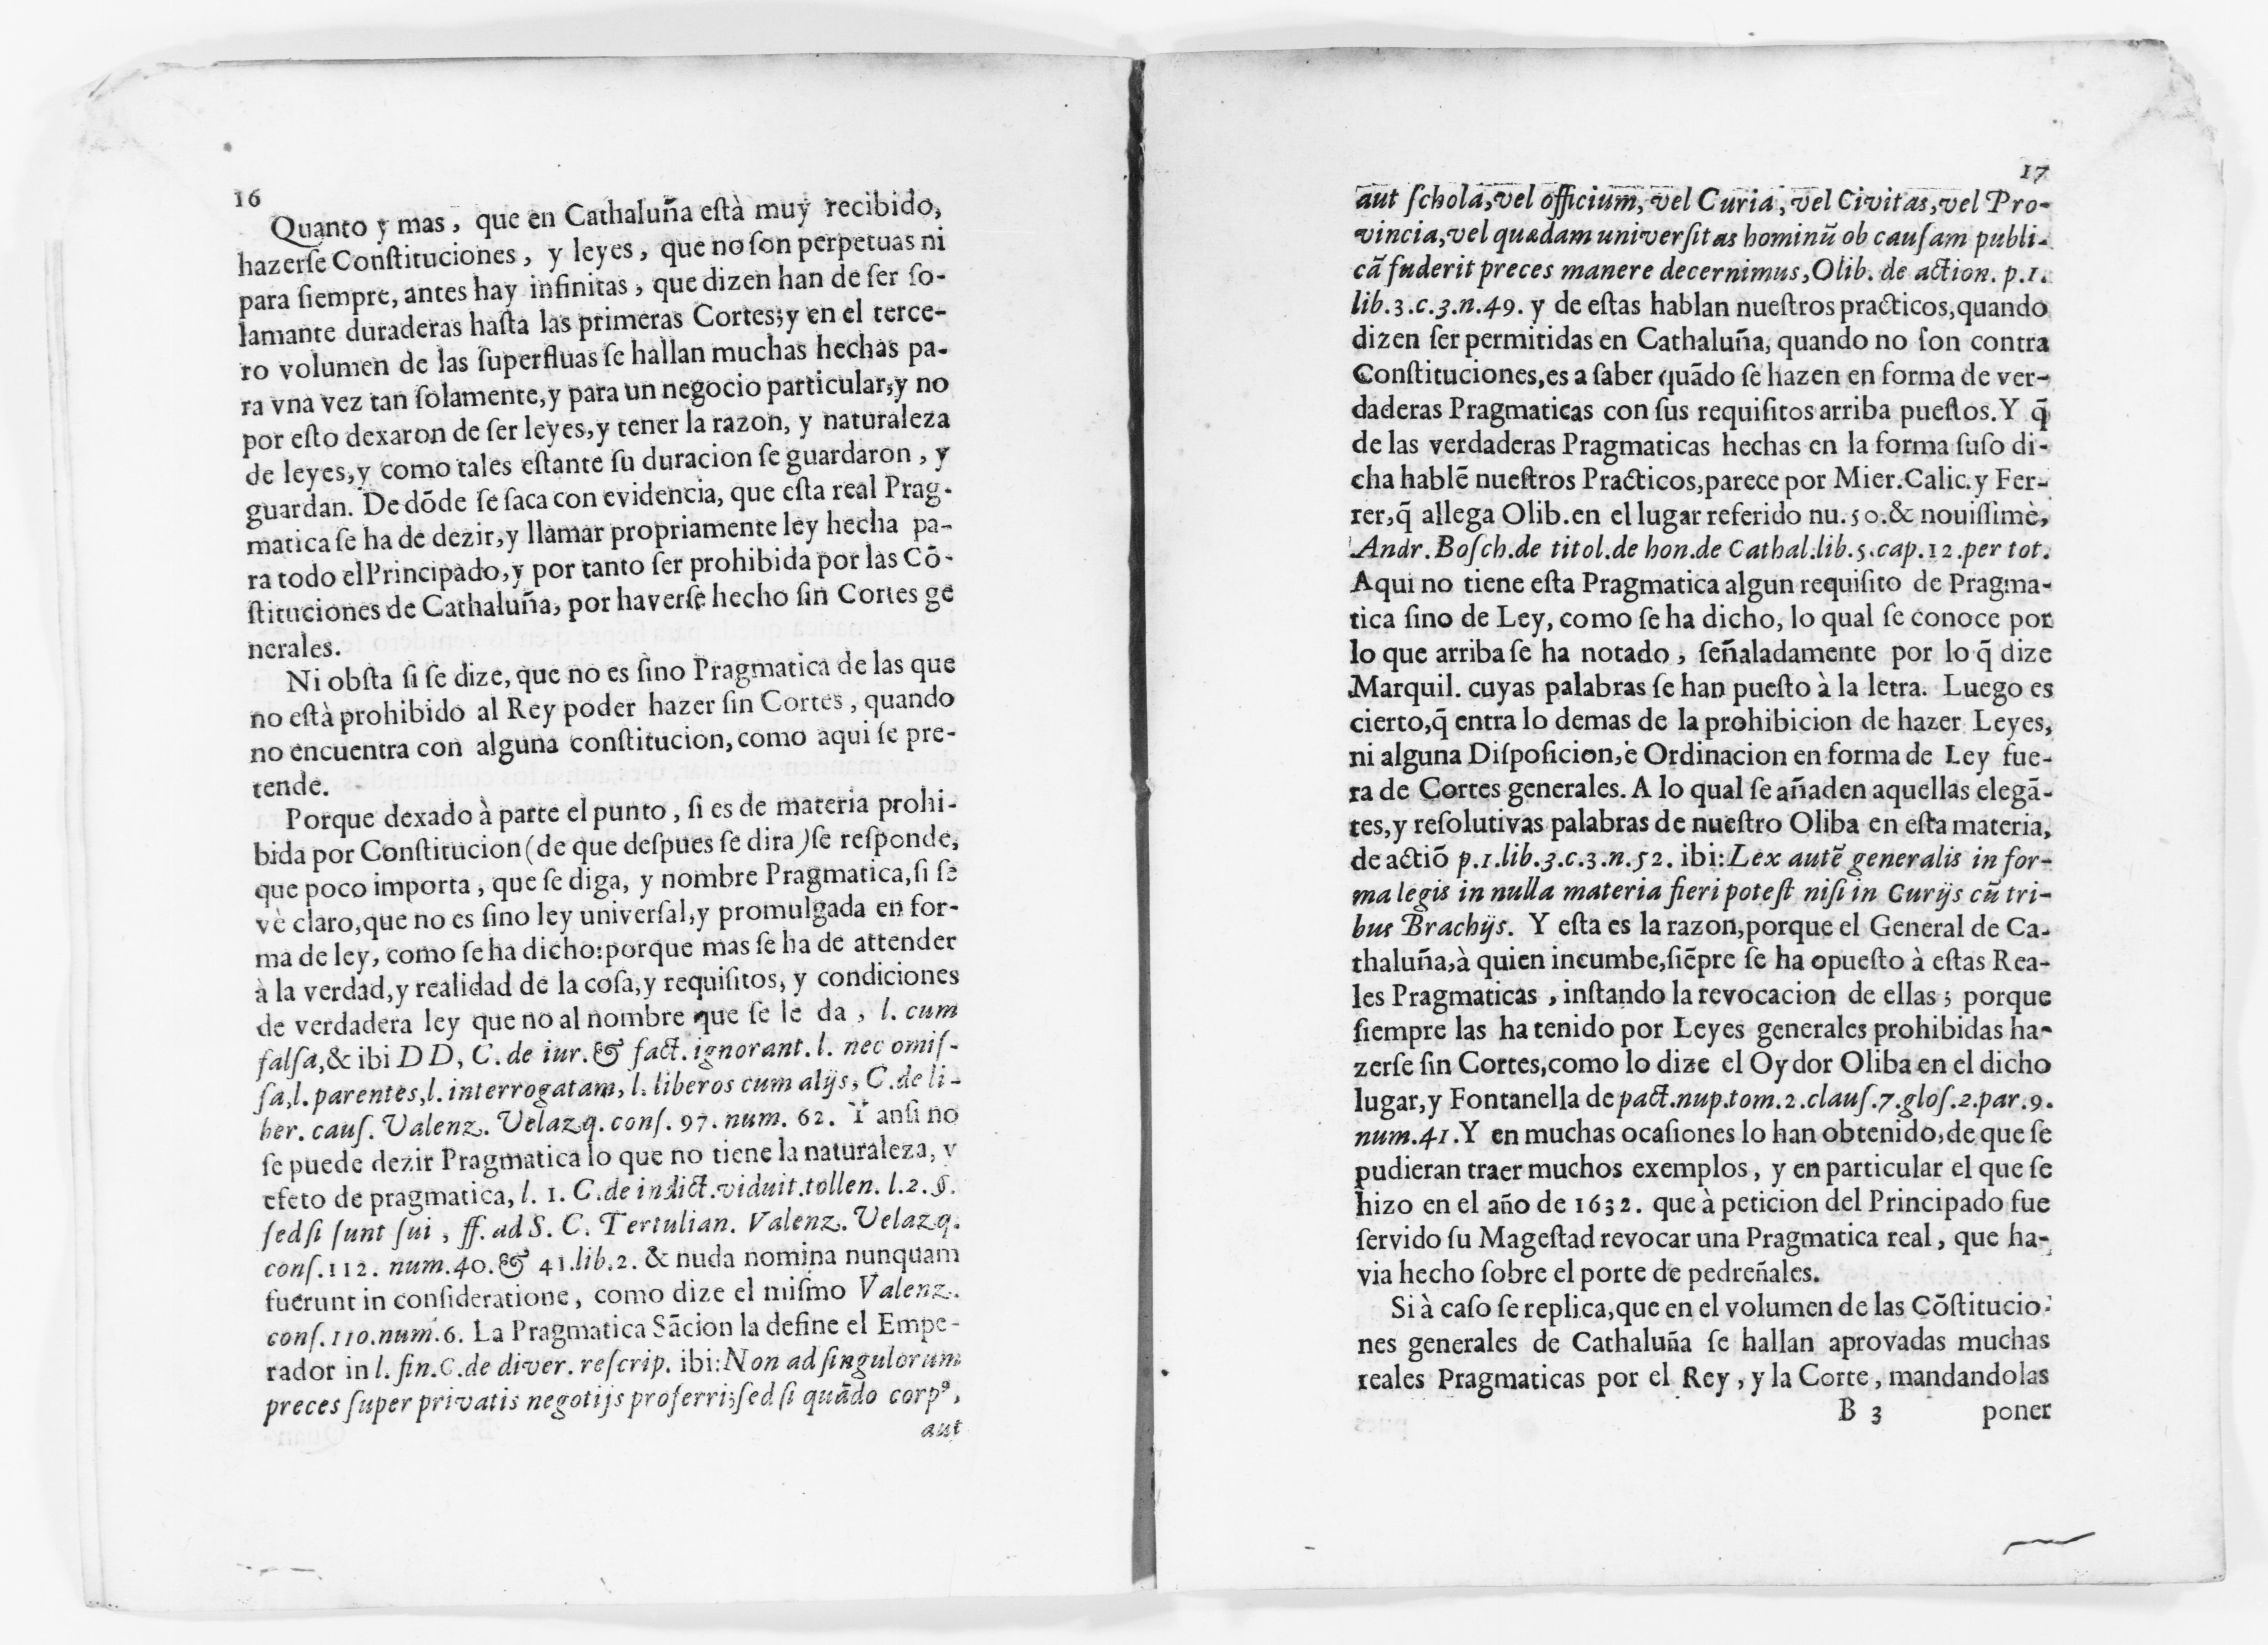 16
Quanto y mas, que en Cathaluña eſtà muy recibido,
hazerſe Conſtituciones, y leyes, que no ſon perpetuas ni
para ſiempre, antes hay infinitas, que dizen han de ſer ſo-
lamante duraderas haſta las primeras Cortes; y en el terce-
ro volumen de las ſuperfluas ſe hallan muchas hechas pa-
ra vna vez tan ſolamente, y para un negocio particular, y no
por eſto dexaron de ſer leyes, y tener la razon, y naturaleza
de leyes, y como tales eſtante ſu duracion ſe guardaron, y
guardan. De dõde ſe ſaca con evidencia, que eſta real Prag-
matica ſe ha de dezir, y llamar propriamente ley hecha pa-
ra todo el Principado, y por tanto ſer prohibida por las Cõ-
ſtituciones de Cathaluña, por haverſe hecho ſin Cortes ge
nerales.
Ni obſta ſi ſe dize, que no es ſino Pragmatica de las que
no eſtà prohibido al Rey poder hazer ſin Cortes, quando
no encuentra con alguna conſtitucion, como aqui ſe pre-
tende.
Porque dexado à parte el punto, ſi es de materia prohi-
bida por Conſtitucion (de que deſpues ſe dira) ſe reſponde,
que poco importa, que ſe diga, y nombre Pragmatica, ſi ſe
vè claro, que no es ſino ley univerſal, y promulgada en for-
ma de ley, como ſe ha dicho: porque mas ſe ha de attender
à la verdad, y realidad de la coſa, y requiſitos, y condiciones
de verdadera ley que no al nombre que ſe le da, l. cum
falſa, & ibi DD, C. de iur. & fact. ignorant. l. nec omiſ-
ſa, l. parentes, l. interrogatam, l. liberos cum alijs, C. de li-
ber. cauſ. Valenz. Velazq. conſ. 97. num. 62. Y anſi no
ſe puede dezir Pragmatica lo que no tiene la naturaleza, y
efeto de pragmatica, l. 1. C. de indict. viduit. tollen. l. 2. §.
ſed ſi ſunt ſui, ff. ad S. C. Tertulian. Valenz. Velazq.
conſ. 112. num. 40. & 41. lib. 2. & nuda nomina nunquam
fuerunt in conſideratione, como dize el miſmo Valenz.
conſ. 110. num. 6. La Pragmatica Sãcion la define el Empe-
rador in l. fin. C. de diver. reſcrip. ibi: Non ad ſingulorum
preces ſuper privatis negotijs proferri; ſed ſi quãdo corpꝰ,
aut
17
aut ſchola, vel officium, vel Curia, vel Civitas, vel Pro-
vincia, vel quædam univerſitas hominũ ob cauſam publi-
cã fuderit preces manere decernimus, Olib. de action. p. 1.
lib. 3. c. 3. n. 49. y de eſtas hablan nueſtros practicos, quando
dizen ſer permitidas en Cathaluña, quando no ſon contra
Conſtituciones, es a ſaber quãdo ſe hazen en forma de ver-
daderas Pragmaticas con ſus requiſitos arriba pueſtos. Y q̃
de las verdaderas Pragmaticas hechas en la forma ſuſo di-
cha hablẽ nueſtros Practicos, parece por Mier. Calic. y Fer-
rer, q̃ allega Olib. en el lugar referido nu. 50. & nouiſſimè,
Andr. Boſch. de titol. de hon. de Cathal. lib. 5. cap. 12. per tot.
Aqui no tiene eſta Pragmatica algun requiſito de Pragma-
tica ſino de Ley, como ſe ha dicho, lo qual ſe conoce por
lo que arriba ſe ha notado, ſeñaladamente por lo q̃ dize
Marquil. cuyas palabras ſe han pueſto à la letra. Luego es
cierto, q̃ entra lo demas de la prohibicion de hazer Leyes,
ni alguna Diſpoſicion, è Ordinacion en forma de Ley fue-
ra de Cortes generales. A lo qual ſe añaden aquellas elegã-
tes, y reſolutivas palabras de nueſtro Oliba en eſta materia,
de actiõ p. 1. lib. 3. c. 3. n. 52. ibi: Lex autẽ generalis in for-
ma legis in nulla materia fieri poteſt niſi in Curijs cũ tri-
bus Brachijs. Y eſta es la razon, porque el General de Ca-
thaluña, à quien incumbe, ſiẽpre ſe ha opueſto à eſtas Rea-
les Pragmaticas, inſtando la revocacion de ellas; porque
ſiempre las ha tenido por Leyes generales prohibidas ha-
zerſe ſin Cortes, como lo dize el Oydor Oliba en el dicho
lugar, y Fontanella de pact. nup. tom. 2. clauſ. 7. gloſ. 2. par. 9.
num. 41. Y en muchas ocaſiones lo han obtenido, de que ſe
pudieran traer muchos exemplos, y en particular el que ſe
hizo en el año de 1632. que à peticion del Principado fue
ſervido ſu Mageſtad revocar una Pragmatica real, que ha-
via hecho ſobre el porte de pedreñales.
Si à caſo ſe replica, que en el volumen de las Cõſtitucio-
nes generales de Cathaluña ſe hallan aprovadas muchas
reales Pragmaticas por el Rey, y la Corte, mandandolas
B 3 poner